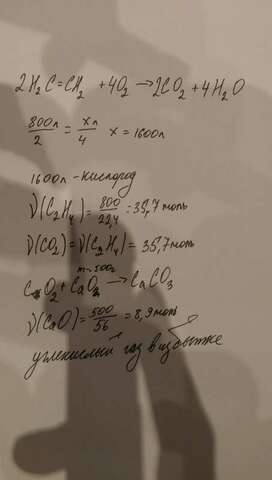 2H₂C=CH₂ +4O₂ → 2CO₂ + 4H₂O
800л/2 = xл/4 x = 1600л
1600л - кислород
ν(C₂H₄) = 800/22,4 = 35,7 моль
ν(CO₂) = ν(C₂H₄) = 35,7 моль
m=500г
CO₂ + CaO → CaCO₃
ν(CaO) = 500/56 = 8,9 моль
углекислый газ в избытке